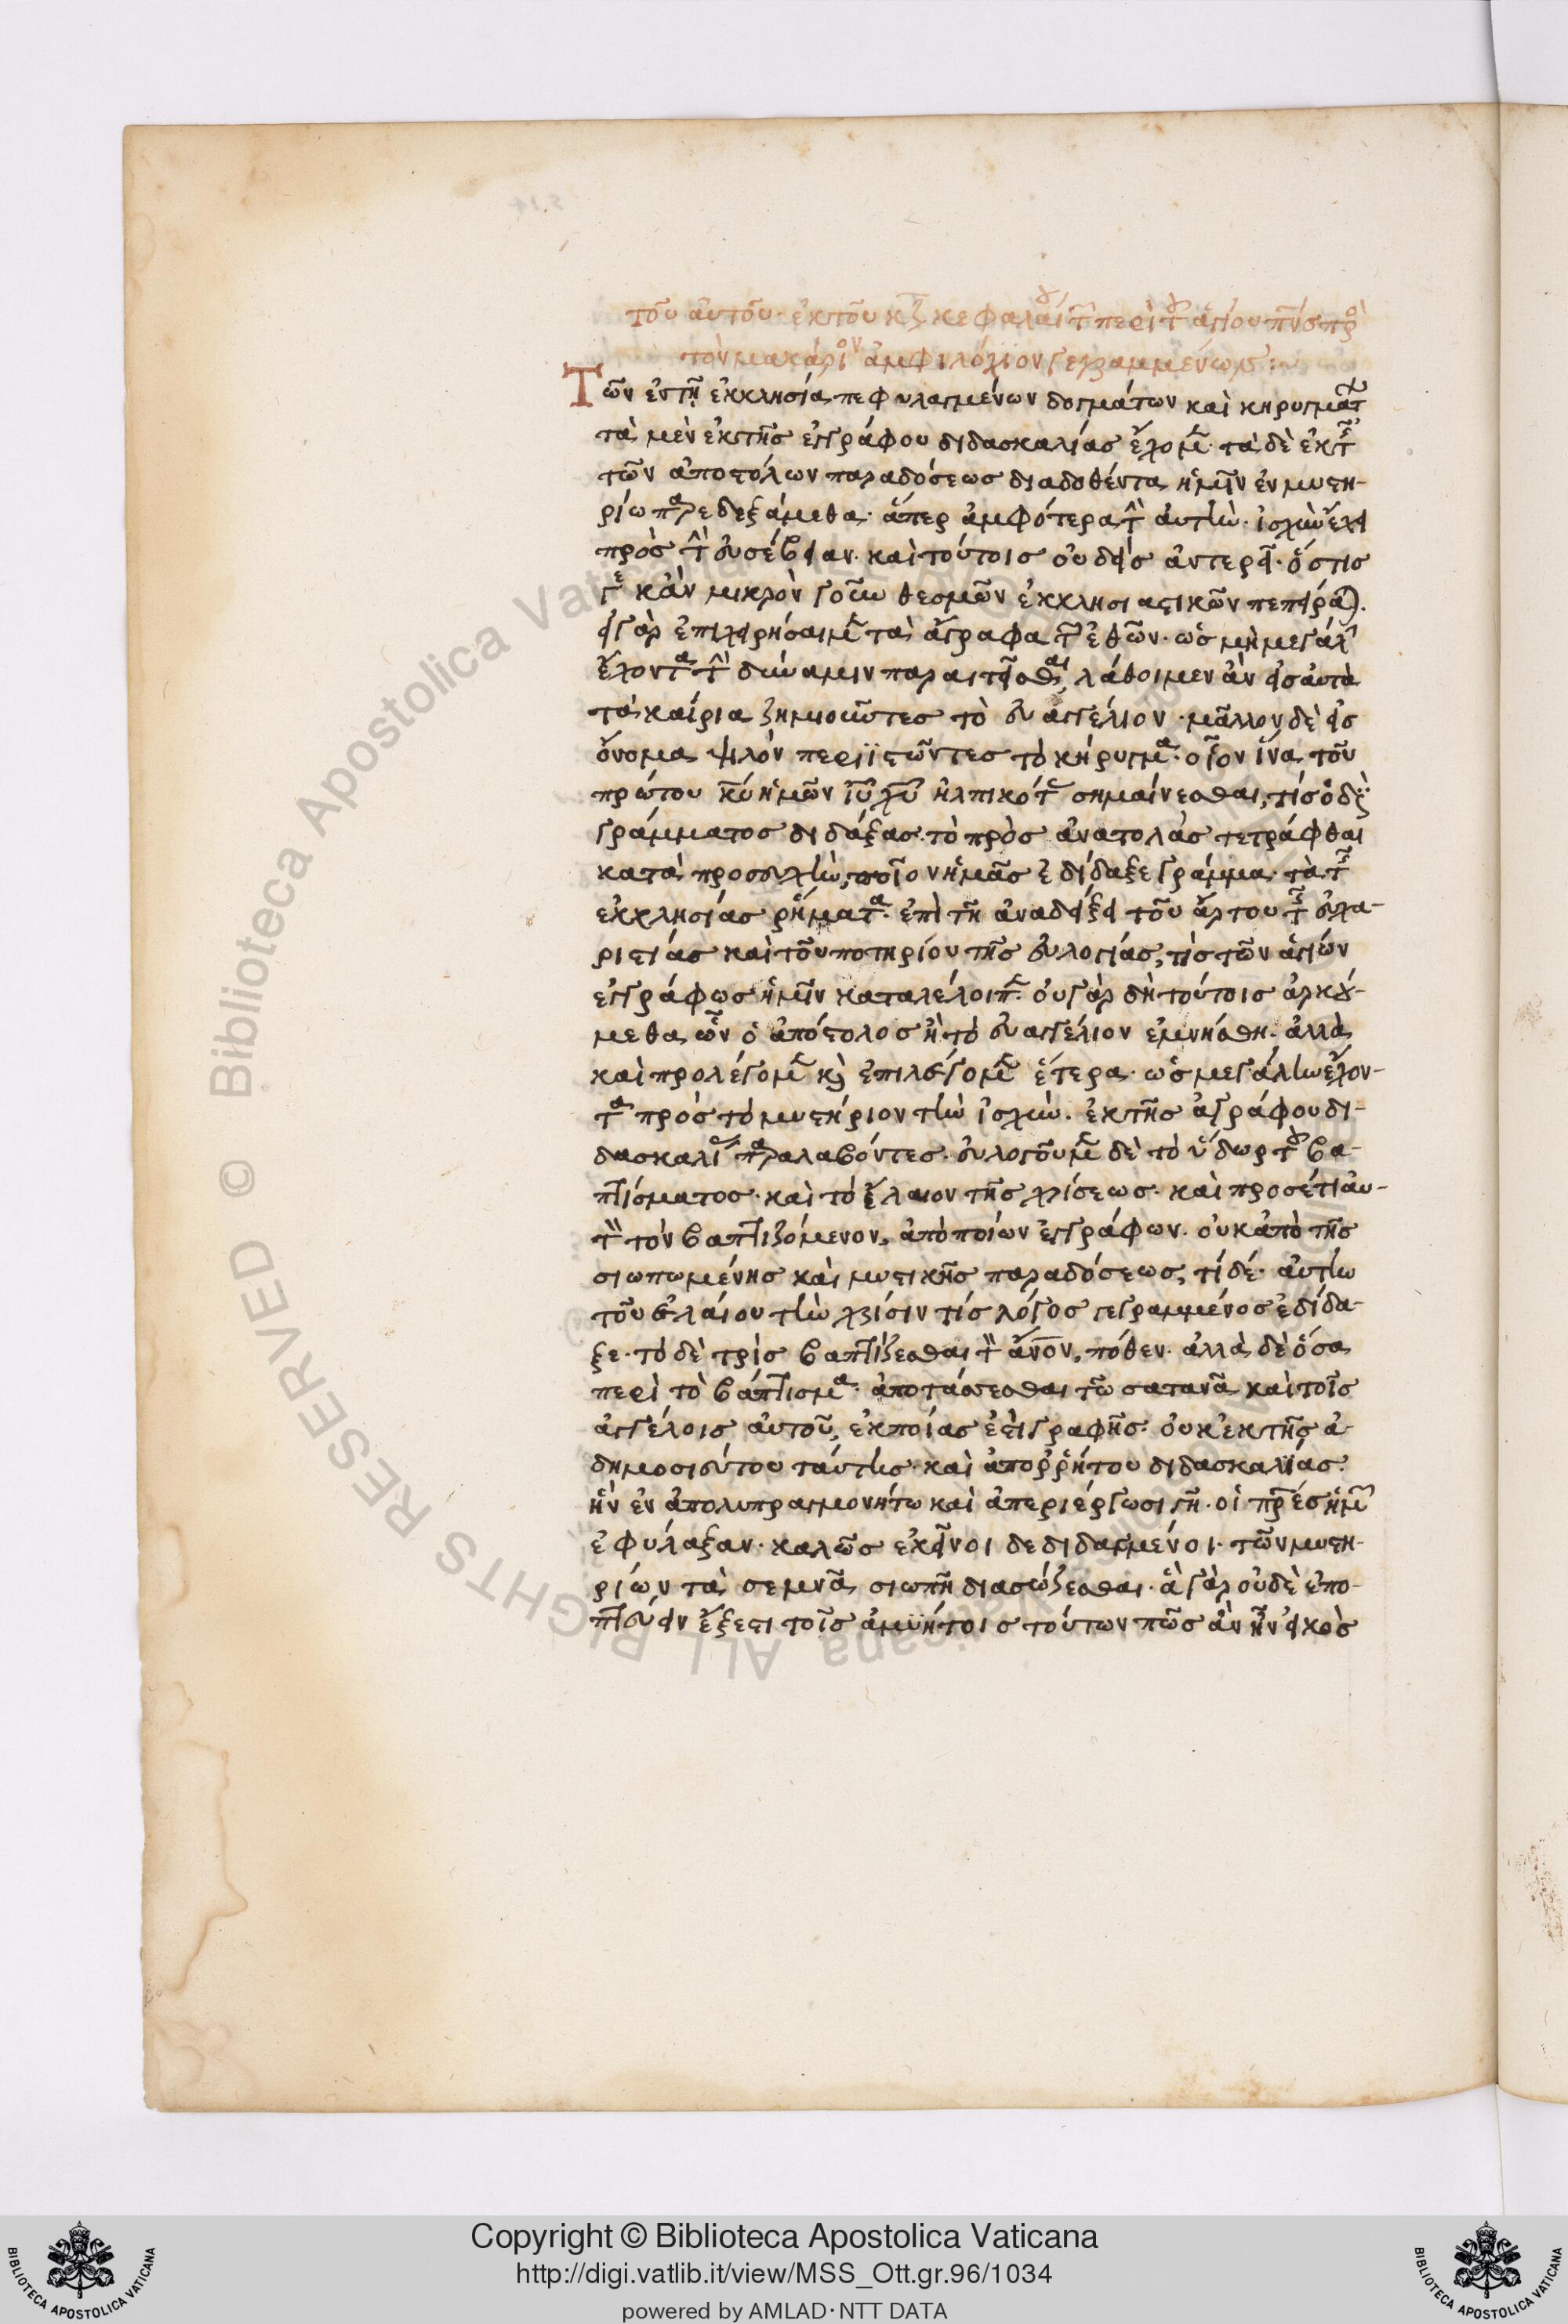 τοῦ αὐτοῦ· ἐκ τοῦ κζ κεφαλαίου τῶν περὶ τοῦ ἁγίου πνς πρὸ
τὸν μακάριον ἀμφιλόχιον γεγραμμένων:
Τῶν ἐν τῇ ἐκκλησία πεφυλαγμένων δογμάτων καὶ κηρυγμάτων
τὰ μὲν ἐκ τῆς ἐγγράφου διδασκαλίας ἔχομεν· τὰ δὲ ἐκ τῆς
τῶν ἀποστόλων παραδόσεως διαδοθέντα ἡμῖν ἐν μυστη-
ρίω παρεδεξάμεθα· ἅπερ ἀμφότερα τὴν αὐτὴν ἰσχὺν ἔχει
πρὸς τὴν εὐσέβειαν· καὶ τούτοις οὐδεὶς ἀντερεῖ· ὅστις
γε κἂν μικρὸν γοῦν θεσμῶν ἐκκλησιαστικῶν πεπείραται.
εἰ γὰρ ἐπιχειρήσαιμεν τὰ ἄγραφα τῶν ἐθῶν· ὡς μὴ μεγάλην
ἔχοντα τὴν δύναμιν παραιτεῖσθαι, λάθοιμεν ἂν εἰς αὐτὰ
τὰ καίρια ζημιοῦντες τὸ εὐαγγέλιον· μᾶλλον δὲ εἰς
ὄνομα ψιλὸν περιϊστῶντες τὸ κήρυγμα· οἷον ἵνα τοῦ
πρώτου κυ ἡμῶν ιυ χυ ἠλπικότας σημαίνεσθαι, τίς ὁ δὲ
γράμματος διδάξας· τὸ πρὸς ἀνατολὰς τετράφθαι
κατὰ προσευχὴν, ποῖον ἡμᾶς ἐδίδαξε γράμμα· τὰ τῆς
ἐκκλησίας ῥήματα· ἐπὶ τῇ ἀναδείξει τοῦ ἄρτου τῆς εὐχα-
ριστίας καὶ τοῦ ποτηρίου τῆς εὐλογίας, τίς τῶν ἁγίων
ἐγγράφως ἡμῖν καταλέλοιπεν· οὐ γὰρ δὴ τούτοις ἀρκού-
μεθα ὧν ὁ ἀπόστολος ἢ τὸ εὐαγγέλιον ἐμνήσθη· ἀλλὰ
καὶ προλέγομεν καὶ ἐπιλέγομεν ἕτερα· ὡς μεγάλην ἔχον-
τα πρὸς τὸ μυστήριον τὴν ἰσχὺν· ἐκ τῆς ἀγράφου δι-
δασκαλίας παραλαβόντες· εὐλογοῦμεν δὲ τὸ ὕδωρ τοῦ βα-
πτίσματος· καὶ τὸ ἔλαιον τῆς χρίσεως· καὶ προσέτι αὐ-
τὸν τὸν βαπτιζόμενον, ἀπὸ ποίων ἐγγράφων· οὐκ ἀπὸ τῆς
σιωπωμένης καὶ μυστικῆς παραδόσεως, τί δέ· αὐτὴν
τοῦ ἐλαίου τὴν χρίσιν τίς λόγος γεγραμμένος ἐδίδα-
ξε· τὸ δὲ τρὶς βαπτίζεσθαι τὸν ἄνον, πόθεν· ἀλλὰ δὲ ὅσα
περὶ τὸ βάπτισμα· ἀποτάσσεσθαι τῶ σατανᾶ καὶ τοῖς
ἀγγέλοις αὐτοῦ, ἐκ ποίας ἐστὶ γραφῆς· οὐκ ἐκ τῆς ἀ-
δημοσιεύτου ταύτης· καὶ ἀπορρήτου διδασκαλίας·
ἣν ἐν ἀπολυπραγμονήτω καὶ ἀπεριέργω σιγῆ· οἱ πρες ἡμῶν
ἐφύλαξαν· καλῶς ἐκεῖνοι δεδιδαγμένοι· τῶν μυστη-
ρίων τὰ σεμνὰ σιωπῆ διασώζεσθαι· ἃ γὰρ οὐδὲ ἐπο-
πτεύειν ἔξεστι τοῖς ἀμυήτοις τούτων πῶς ἂν ἦν εἰκὸς
Copyright © Biblioteca Apostolica Vaticana
http://digi.vatlib.it/view/MSS_Ott.gr.96/1034
powered by AMLAD·NTT DATA